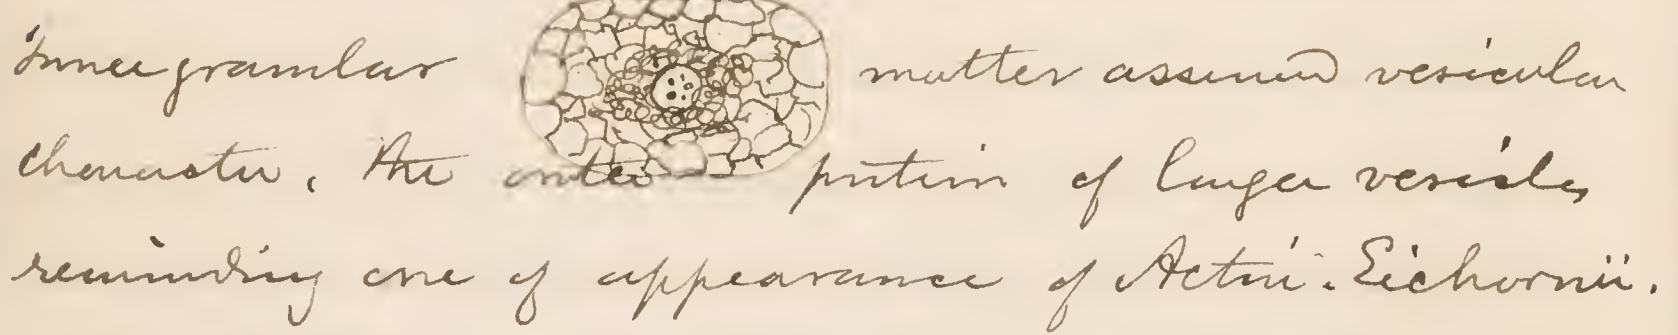 Inner granular matter assumed vesicular
character. The outer portion of larger vesicles
reminding one of appearance of Actin. Eichornii.